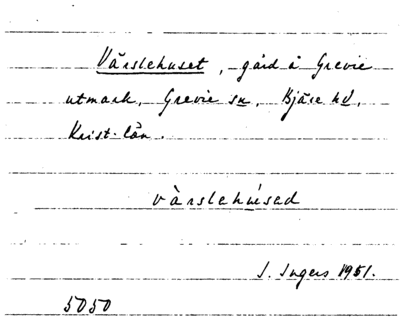 Värslehuset, gård å Grevie
utmark, Grevie sn, Bjäre hd,
Krist. län.
vàrslehúsad
I. Ingers 1951.
5050